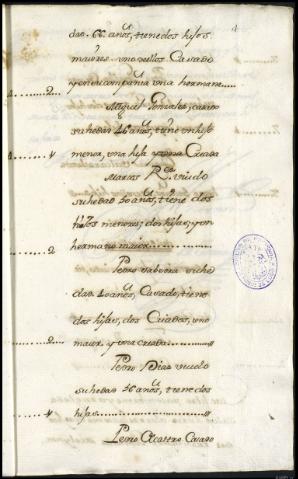 dad. 66. anõs, tiene dos hijos
maiores. uno dellos Casado
y en compañia una hermana
2
Miguel Gonzales, casado
su hedad 46 anõs, tiene un hijo
menor, una hija y una Criada
4
Marcos Rs. viudo
su hedad 50 anõs, tiene dos
hijos menores; dos hijas, y un
hermano maior
2
Pedro Taboera su he
dad 40 anõs, Casado, tiene
dos hijas, dos Criados, uno
maior y una criada
2
Pedro Dias viudo
su hedad 56 anõs, tiene dos
hijas
4
Pedro Casado